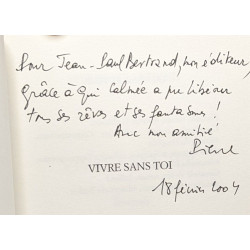 Pour Jean-Paul Bertrand, mon éditeur,
grâce à qui Calmée a pu libérer
tous ses rêves et ses fantasmes !
Avec mon amitié
Pierre
VIVRE SANS TOI
18 février 2004